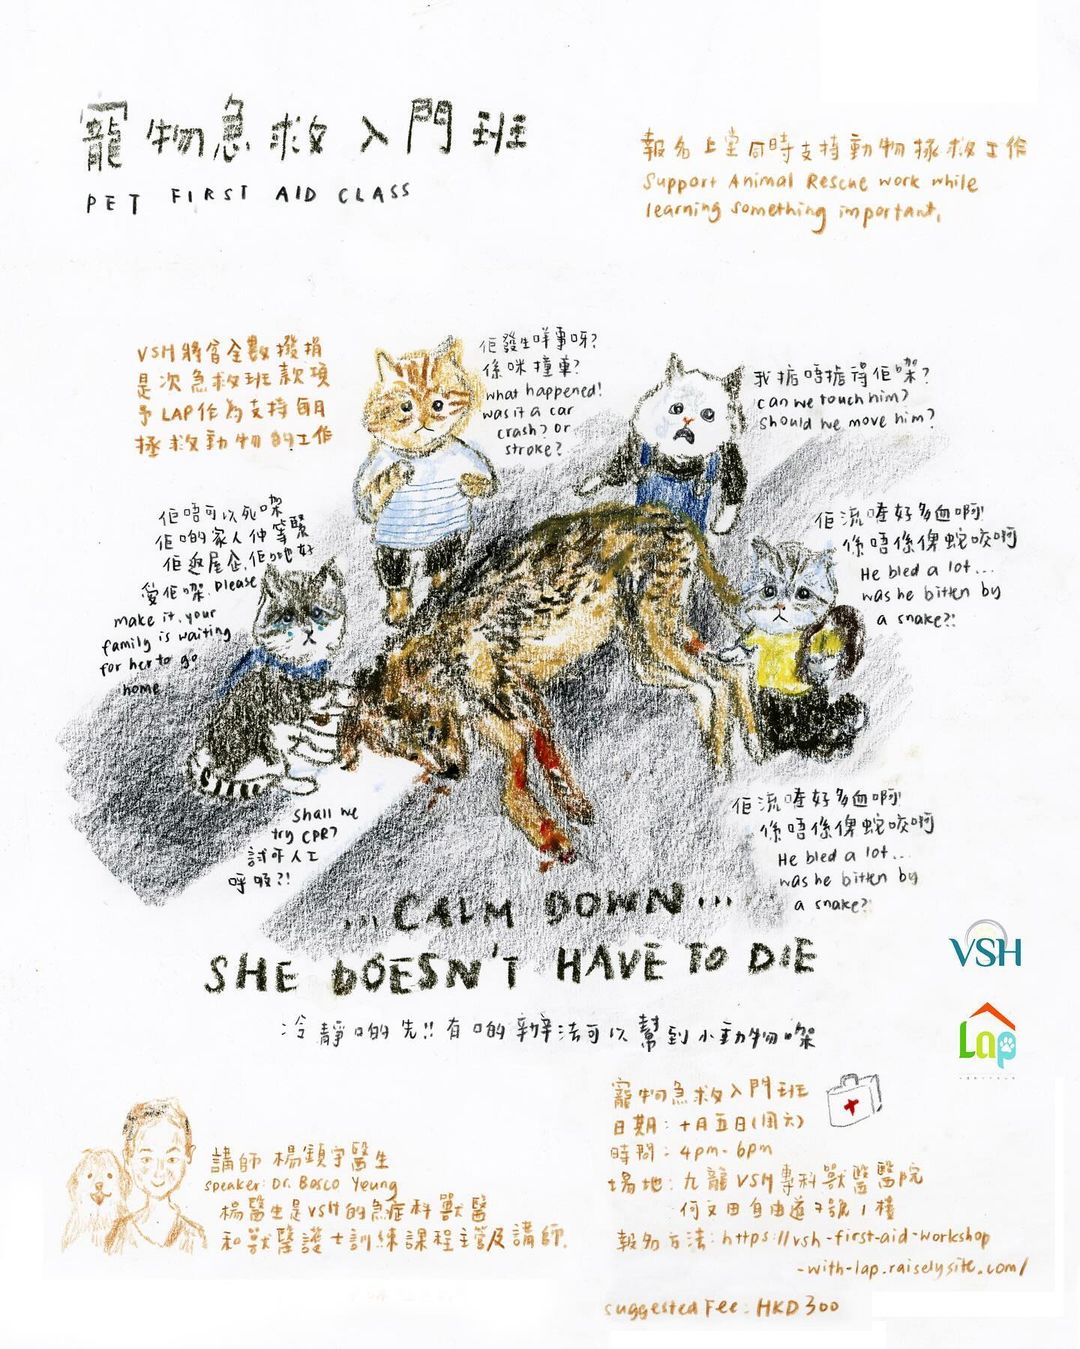 寵物急救入門班
PET FIRST AID CLASS
報名上堂同時支持動物拯救工作
Support Animal Rescue work while
learning something important,
VSH將會全數撥捐
是次急救班款項
予LAP作為支持每月
拯救動物的工作
佢發生咩事呀?
係咪撞車?
what happened!
was it a car
crash? or
stroke?
我掂唔掂得佢㗎?
can we touch him?
should we move him?
佢唔可以死㗎
佢啲家人仲等緊
佢返屋企,佢哋好
愛佢㗎. please
make it, your
family is waiting
for her to go
home
佢流咗好多血啊!
係唔係俾蛇咬啊
He bled a lot...
was he bitten by
a snake?!
shall we
try CPR?
試吓人工
呼吸?!
佢流咗好多血啊!
係唔係俾蛇咬啊
He bled a lot...
was he bitten by
a snake?
...CALM DOWN...
SHE DOESN'T HAVE TO DIE
冷靜啲先!!有啲辦法可以幫到小動物㗎
VSH
Lap
講師 楊鎮宇醫生
speaker: Dr. Bosco Yeung
楊醫生是VSH的急症科獸醫
和獸醫護士訓練課程主管及講師.
寵物急救入門班
日期：十月五日(周六)
時間：4pm-6pm
場地：九龍VSH專科獸醫醫院
何文田自由道7號1樓
報名方法：https://vsh-first-aid-workshop
-with-lap.raiselysite.com/
suggested Fee: HKD 300